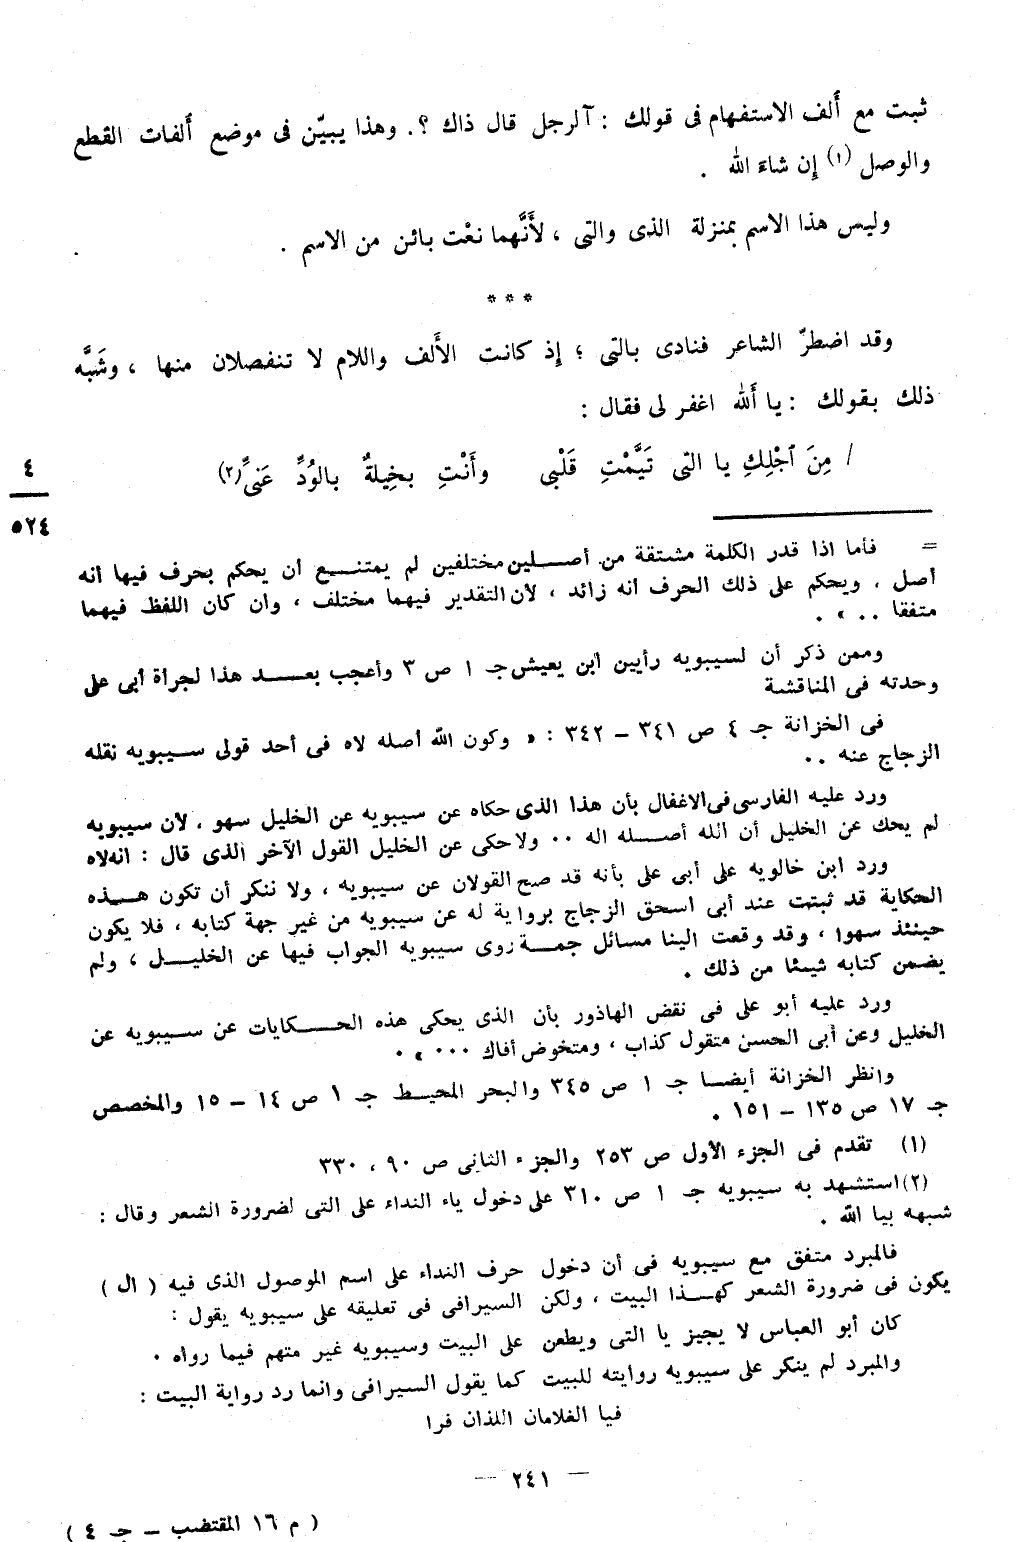 ثبت مع ألف الاستفهام فى قولك : آلرجل قال ذاك ؟. وهذا يبيّن فى موضع ألفات القطع
والوصل (١) إن شاءَ الله .
وليس هذا الاسم بمنزلة الذى والتى ، لأَنَّهما نعْت بائن من الاسم .
* * *
وقد اضطرّ الشاعر فنادى بالتى ؛ إذ كانت الأَلف واللام لا تنفصلان منها ، وشَبَّه
ذلك بقولك : يا أَلله اغفر لى فقال :
/ مِنَ ٱجْلِكِ يا التى تَيَّمْتِ قَلْبى وأَنْتِ بخِيلةٌ بالوُدِّ عَنىِّ(٢)
٤
٥٢٤
= فأما اذا قدر الكلمة مشتقة من أصلين مختلفين لم يمتنع أن يحكم بحرف فيها أنه
أصل ، ويحكم على ذلك الحرف انه زائد ، لأن التقدير فيهما مختلف ، وان كان اللفظ فيهما
متفقا .. » .
وممن ذكر أن لسيبويه رأيين ابن يعيش جـ ١ ص ٣ وأعجب بعد هذا لجرأة أبى على
وحدته فى المناقشة
فى الخزانة جـ ٤ ص ٣٤١ – ٣٤٢ : « وكون الله أصله لاه فى أحد قولى سيبويه نقله
الزجاج عنه ..
ورد عليه الفارسى فى الاغفال بأن هذا الذى حكاه عن سيبويه عن الخليل سهو ، لأن سيبويه
لم يحك عن الخليل أن الله أصله اله .. ولا حكى عن الخليل القول الآخر الذى قال : انه لاه
ورد ابن خالويه على أبى على بأنه قد صح القولان عن سيبويه ، ولا ننكر أن تكون هذه
الحكاية قد ثبتت عند أبى اسحق الزجاج برواية له عن سيبويه من غير جهة كتابه ، فلا يكون
حينئذ سهوا ، وقد وقعت الينا مسائل جمة روى سيبويه الجواب فيها عن الخليل ، ولم
يضمن كتابه شيئا من ذلك .
ورد عليه أبو على فى نقض الهاذور بأن الذى يحكى هذه الحكايات عن سيبويه عن
الخليل وعن أبى الحسن متقول كذاب ، ومتخوض أفاك ... » .
وانظر الخزانة أيضا جـ ١ ص ٣٤٥ والبحر المحيط جـ ١ ص ١٤ – ١٥ والمخصص
جـ ١٧ ص ١٣٥ – ١٥١ .
(١) تقدم فى الجزء الأول ص ٢٥٣ والجزء الثانى ص ٩٠ ، ٣٣٠
(٢) استشهد به سيبويه جـ ١ ص ٣١٠ على دخول ياء النداء على التى لضرورة الشعر وقال :
شبهه بيا الله .
فالمبرد متفق مع سيبويه فى أن دخول حرف النداء على اسم الموصول الذى فيه ( ال )
يكون فى ضرورة الشعر كهذا البيت ، ولكن السيرافى فى تعليقه على سيبويه يقول :
كان أبو العباس لا يجيز يا التى ويطعن على البيت وسيبويه غير متهم فيما رواه .
والمبرد لم ينكر على سيبويه روايته للبيت كما يقول السيرافى وانما رد رواية البيت :
فيا الغلامان اللذان فرا
— ٢٤١ —
( م ١٦ المقتضب – جـ ٤ )